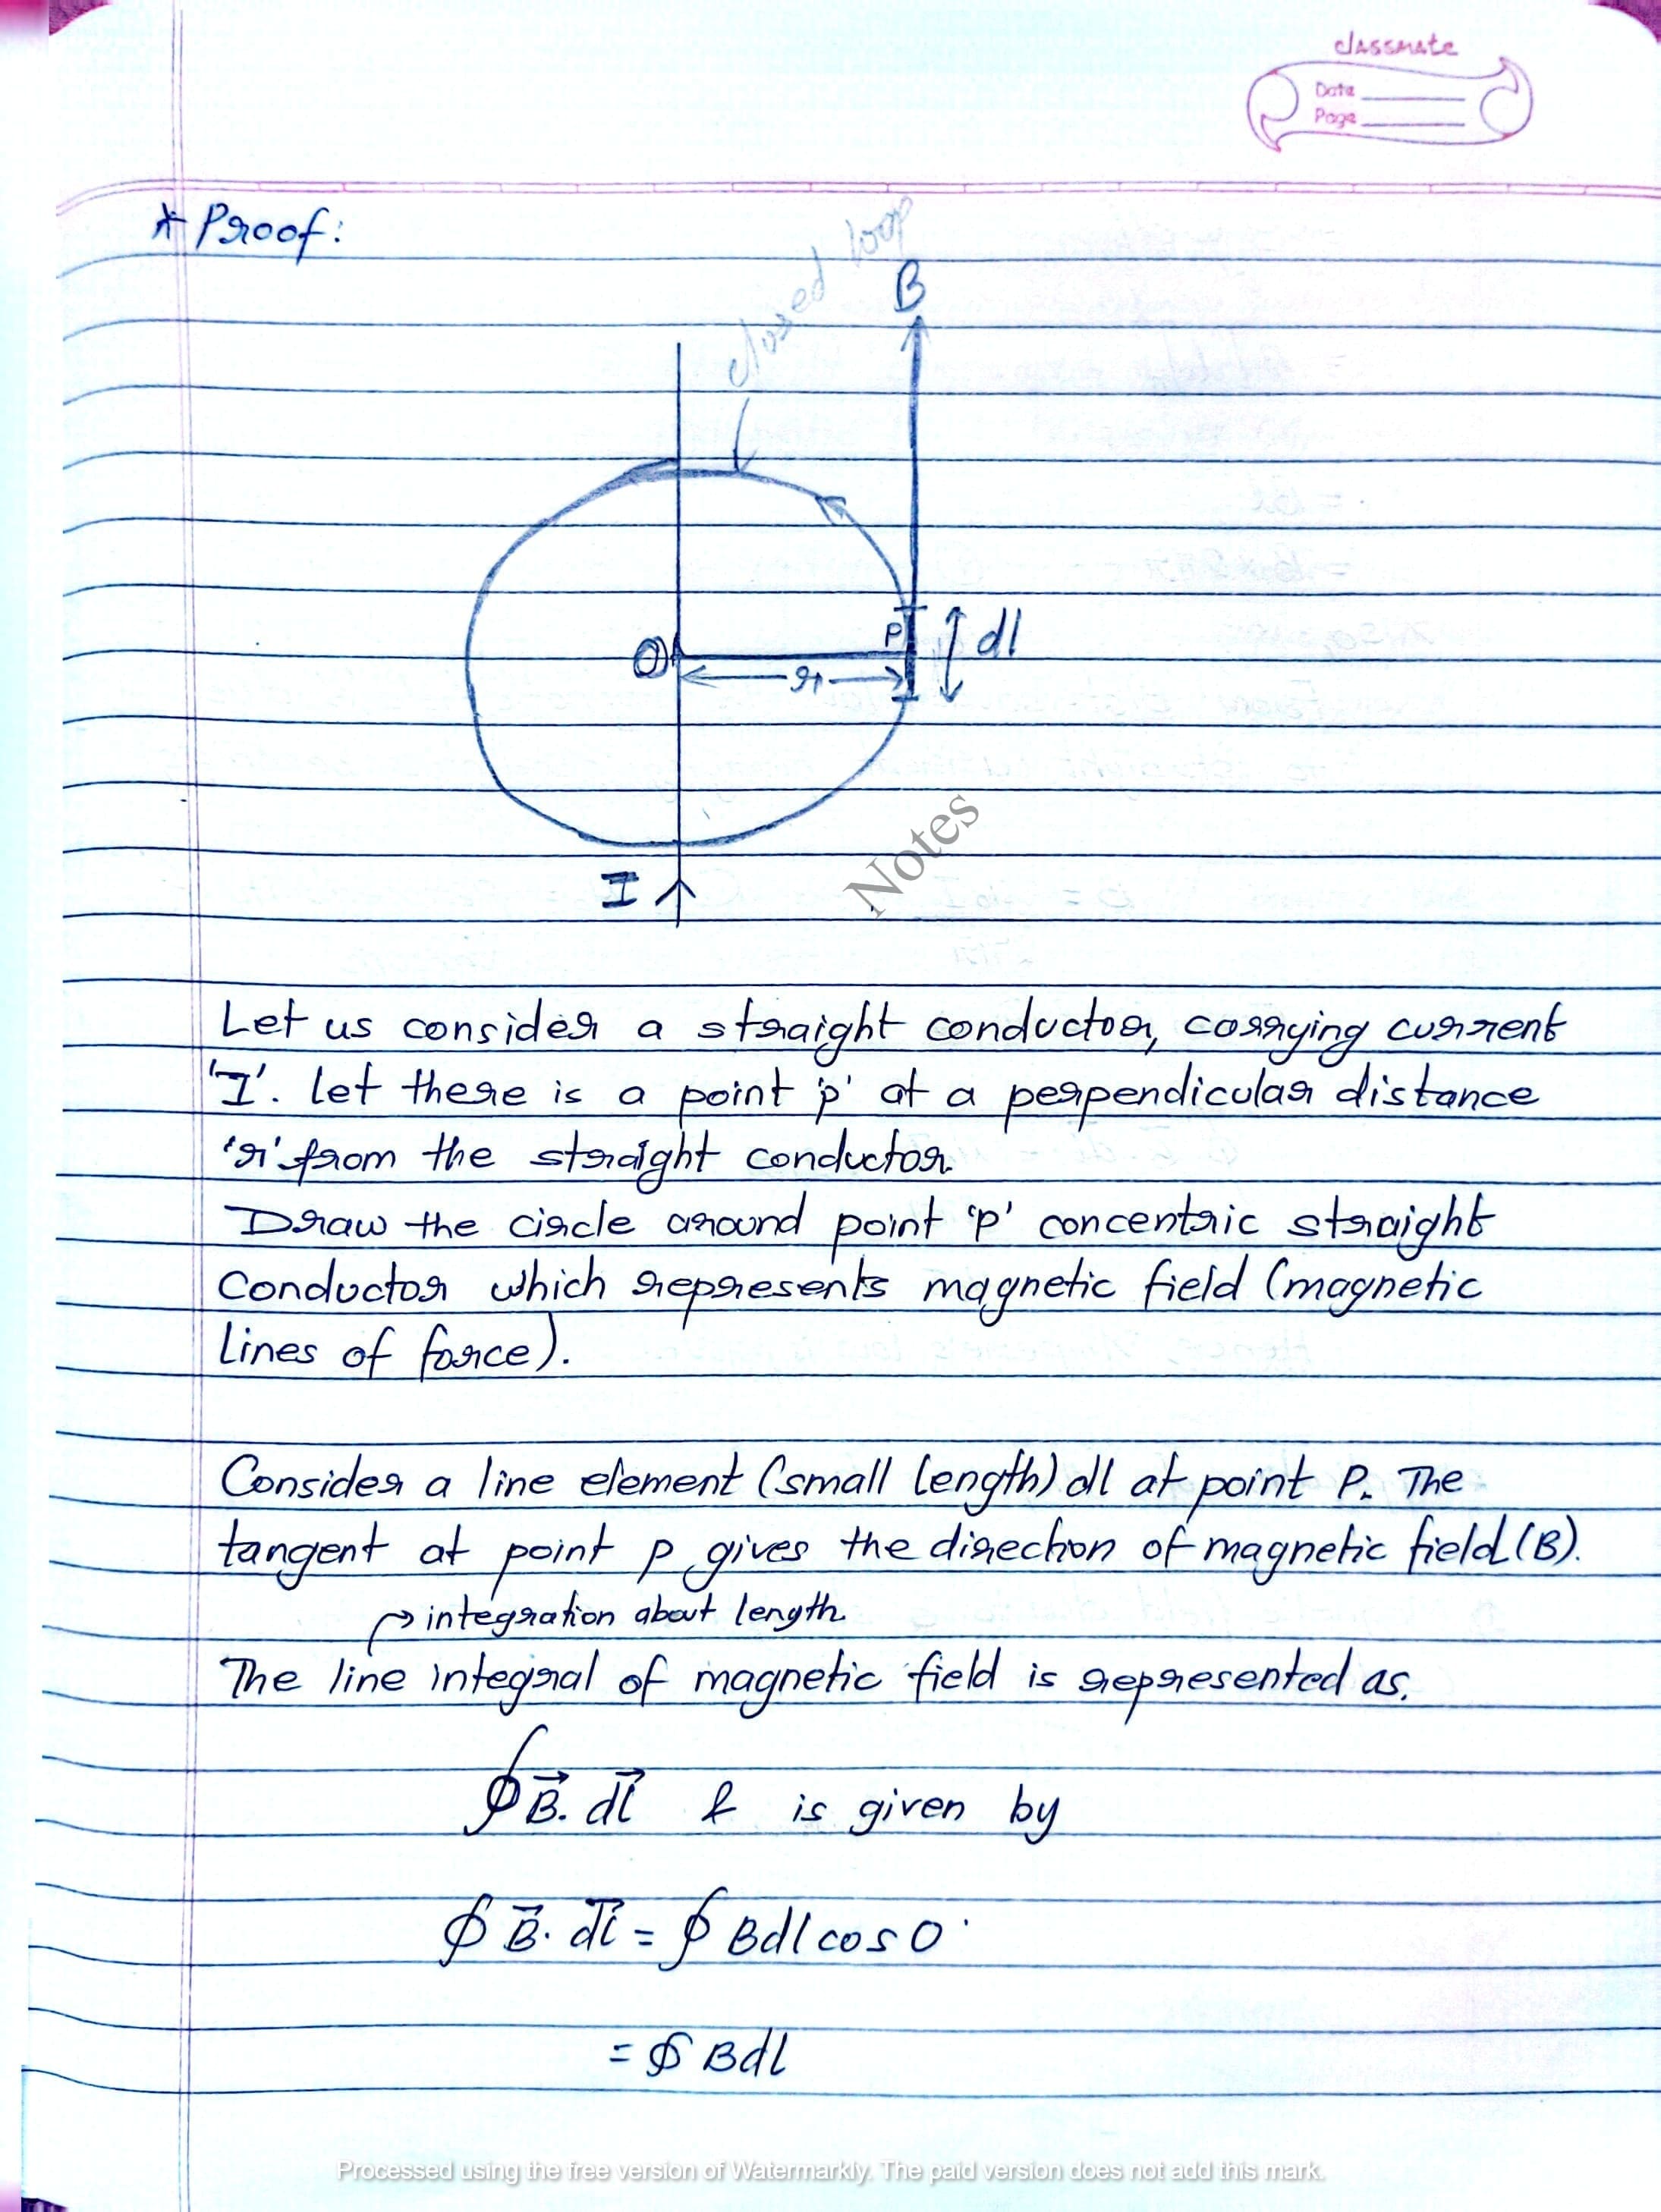 classmate
Date
Page
* Proof:
closed loop
B
P
dl
O
r
Notes
I
Let us consider a straight conductor, carrying current
'I'. let there is a point 'p' at a perpendicular distance
'r' from the straight conductor.
Draw the circle around point 'p' concentric straight
Conductor which represents magnetic field (magnetic
lines of force).
Consider a line element (small length) dl at point P. The
tangent at point p gives the direction of magnetic field (B).
→ integration about length.
The line integral of magnetic field is represented as.
∮ B⃗. dl⃗ & is given by
∮ B⃗. dl⃗ = ∮ Bdl cos 0
= ∮ Bdl
Processed using the free version of Watermarkly. The paid version does not add this mark.